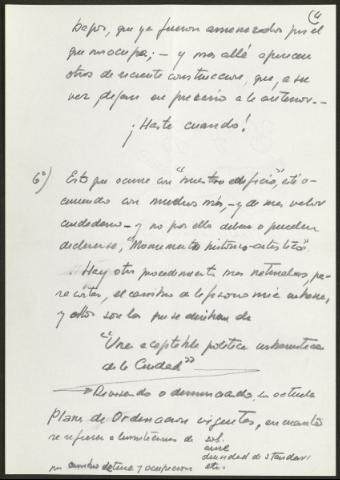 4
bajos, que ya fueron amenazados por el
que nos ocupa; — y mas allá aparecen
otros de reciente construccion, que, a su
vez dejan en precario a lo anterior. —
¡Hasta cuando!
6º) Esto que ocurre con "nuestro edificio", etá o-
curriendo con muchos más, — y de mas valor
ciudadano — y no por ello deben o pueden
declararse, "Monumento histórico-artístico".
Hay otros procedimientos mas naturales, pa-
ra evitar, el cambio de la fisonomia urbana,
y estos son los que se derivan de
"Una aceptable politica urbanistica
de la Ciudad"
Revisando o denunciando, los actuales
Planes de Ordenacion vigentes, en cuanto
se refieren a limitaciones de vol.
densidad de standars
en cambio de uso y ocupacion etc.